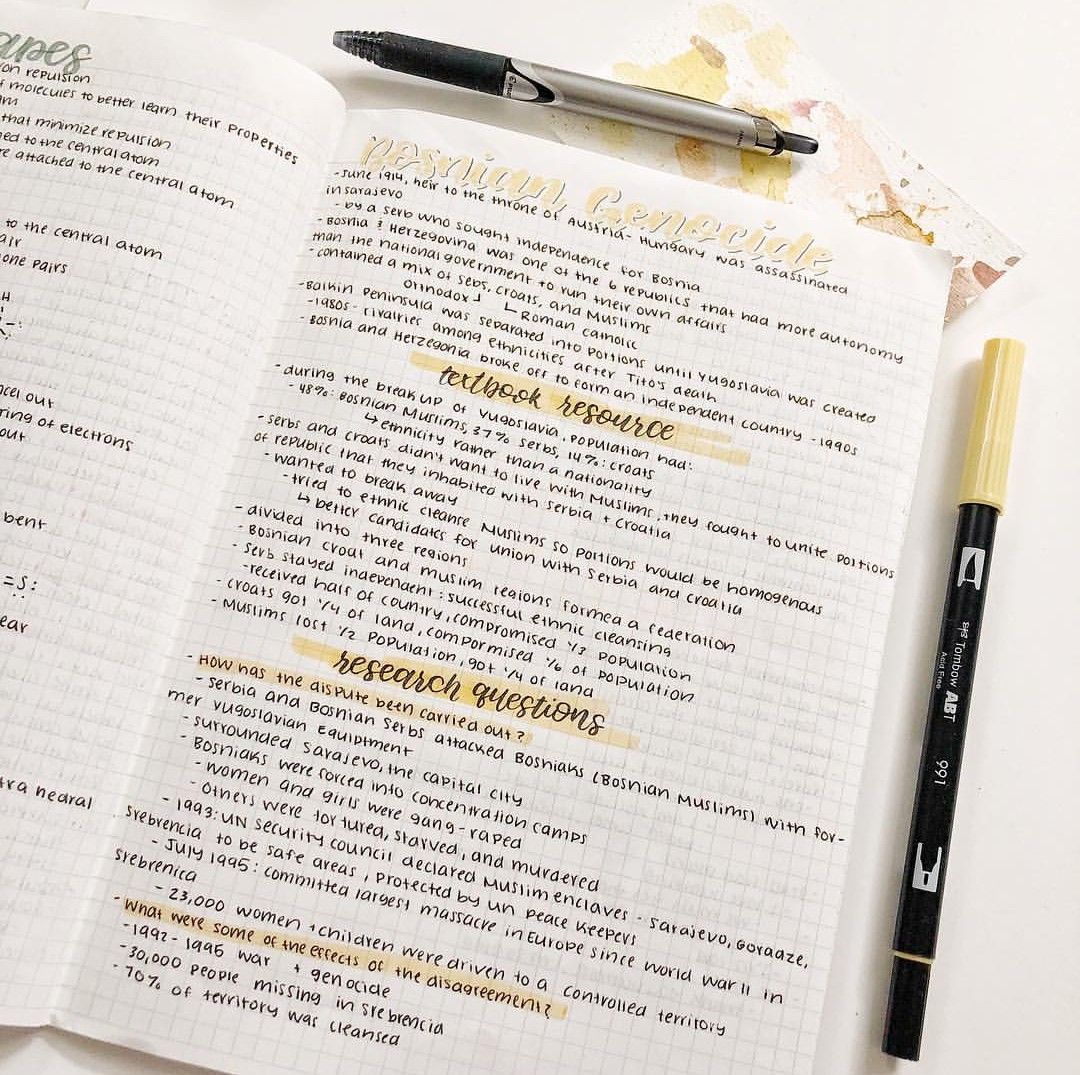 apes
on repulsion
f molecules to better learn their properties
m
that minimize repulsion
ned to the central atom
re attached to the central atom
to the central atom
air
one pairs
H
ncel out
ring of electrons
out
bent
=S:
ear
tra hedral
Bosnian Genocide
- June 1914, heir to the throne of Austria-Hungary was assassinated
in sarajevo
- by a serb who sought independence for Bosnia
- Bosnia & Herzegovina was one of the 6 republics that had more autonomy
than the national government to run their own affairs
- contained a mix of sebs, croats, and Muslims
Orthodox ↲ ↳ Roman catholic
- Balkin Peninsula was separated into portions until Yugoslavia was created
- 1980s - rivalries among ethnicities after Tito's death
- Bosnia and Herzegonia broke off to form an independent country - 1990s
textbook resource
- during the break up of Yugoslavia, population had:
- 48%: Bosnian Muslims, 37% serbs, 14%: croats
↳ ethnicity rather than a nationality
- serbs and croats didn't want to live with Muslims, they fought to unite portions
of republic that they inhabited with serbia + croatia
- wanted to break away
- tried to ethnic cleanse Muslims so portions would be homogenous
↳ better candidates for union with serbia and croatia
- divided into three regions
- Bosnian croat and muslim regions formed a federation
- serb stayed independent: successful ethnic cleansing
- received half of country, compromised 1/3 population
- croats got 1/4 of land, compormised 1/6 of population
- Muslims lost 1/2 population, got 1/4 of land
research questions
- How has the dispute been carried out?
- serbia and Bosnian serbs attacked Bosniaks (Bosnian Muslims) with for-
mer Yugoslavian Equiptment
- surrounded Sarajevo, the capital city
- Bosniaks were forced into concentration camps
- women and girls were gang-raped
- others were tortured, starved, and murdered
- 1993: UN security council declared Muslim enclaves - sarajevo, Goraaze,
srebrencia to be safe areas, protected by UN peace keepers
- July 1995: committed largest massacre in Europe since world war II in
srebrenica
- 23,000 women + children were driven to a controlled territory
- what were some of the effects of the disagreement?
- 1992-1995 war + genocide
- 30,000 people missing in srebrencia
- 70% of territory was cleansed
Tombow ABT
Acid Free
991